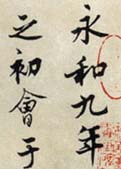 永和九年
之初會于